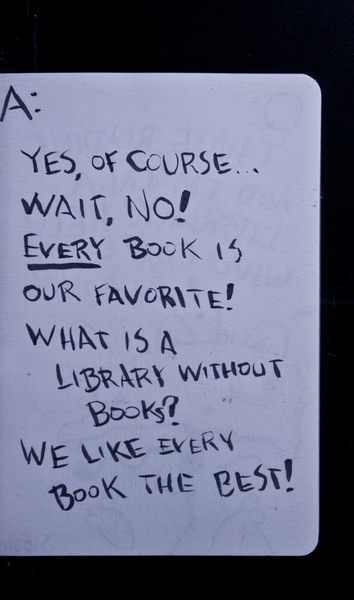 A:
YES, OF COURSE...
WAIT, NO!
EVERY BOOK IS
OUR FAVORITE!
WHAT IS A
LIBRARY WITHOUT
BOOKS?
WE LIKE EVERY
BOOK THE BEST!